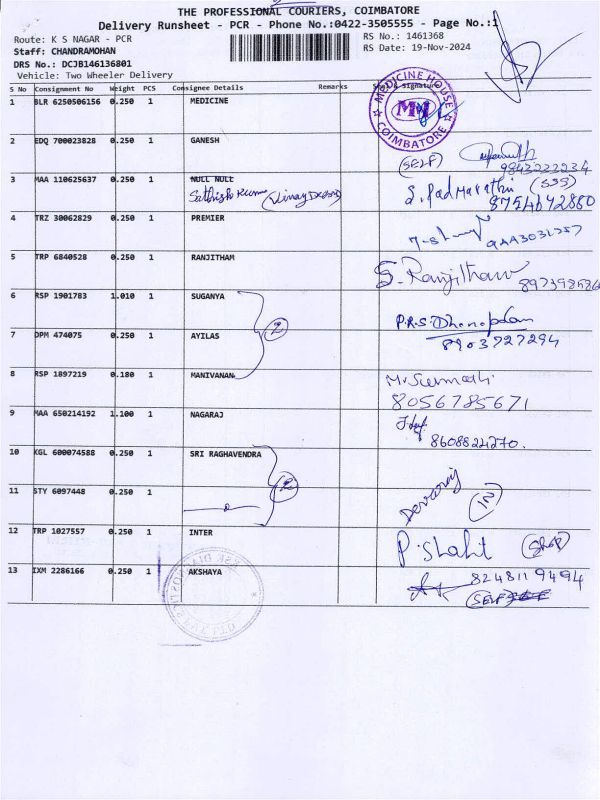 THE PROFESSIONAL COURIERS, COIMBATORE
Delivery Runsheet - PCR - Phone No.:0422-3505555 - Page No.:1
Route: K S NAGAR - PCR RS No.: 1461368
Staff: CHANDRAMOHAN RS Date: 19-Nov-2024
DRS No.: DCJB146136801
Vehicle: Two Wheeler Delivery
S No Consignment No Weight PCS Consignee Details Remarks Signature
MEDICINE HOUSE
MH
COIMBATORE
1 BLR 6250506156 0.250 1 MEDICINE
2 EDQ 700023828 0.250 1 GANESH
(SELF) 9843222234
3 MAA 110625637 0.250 1 NULL NULL S. Padmavathi (SSS)
8754672880
4 TRZ 30062829 0.250 1 PREMIER
5 TRP 6840528 0.250 1 RANJITHAM S. Ranjitham
6 RSP 1901783 1.010 1 SUGANYA (2) P.R.S. Dhanapalan
7 DPM 474075 0.250 1 AYILAS 8903727294
8 RSP 1897219 0.180 1 MANIVANAN
8056785671
9 MAA 650214192 1.100 1 NAGARAJ
8608824270.
10 KGL 600074588 0.250 1 SRI RAGHAVENDRA (2)
11 STY 6097448 0.250 1 Devaraj (IN)
12 TRP 1027557 0.250 1 INTER
13 IXM 2286166 0.250 1 AKSHAYA 8248119494
(SELF)